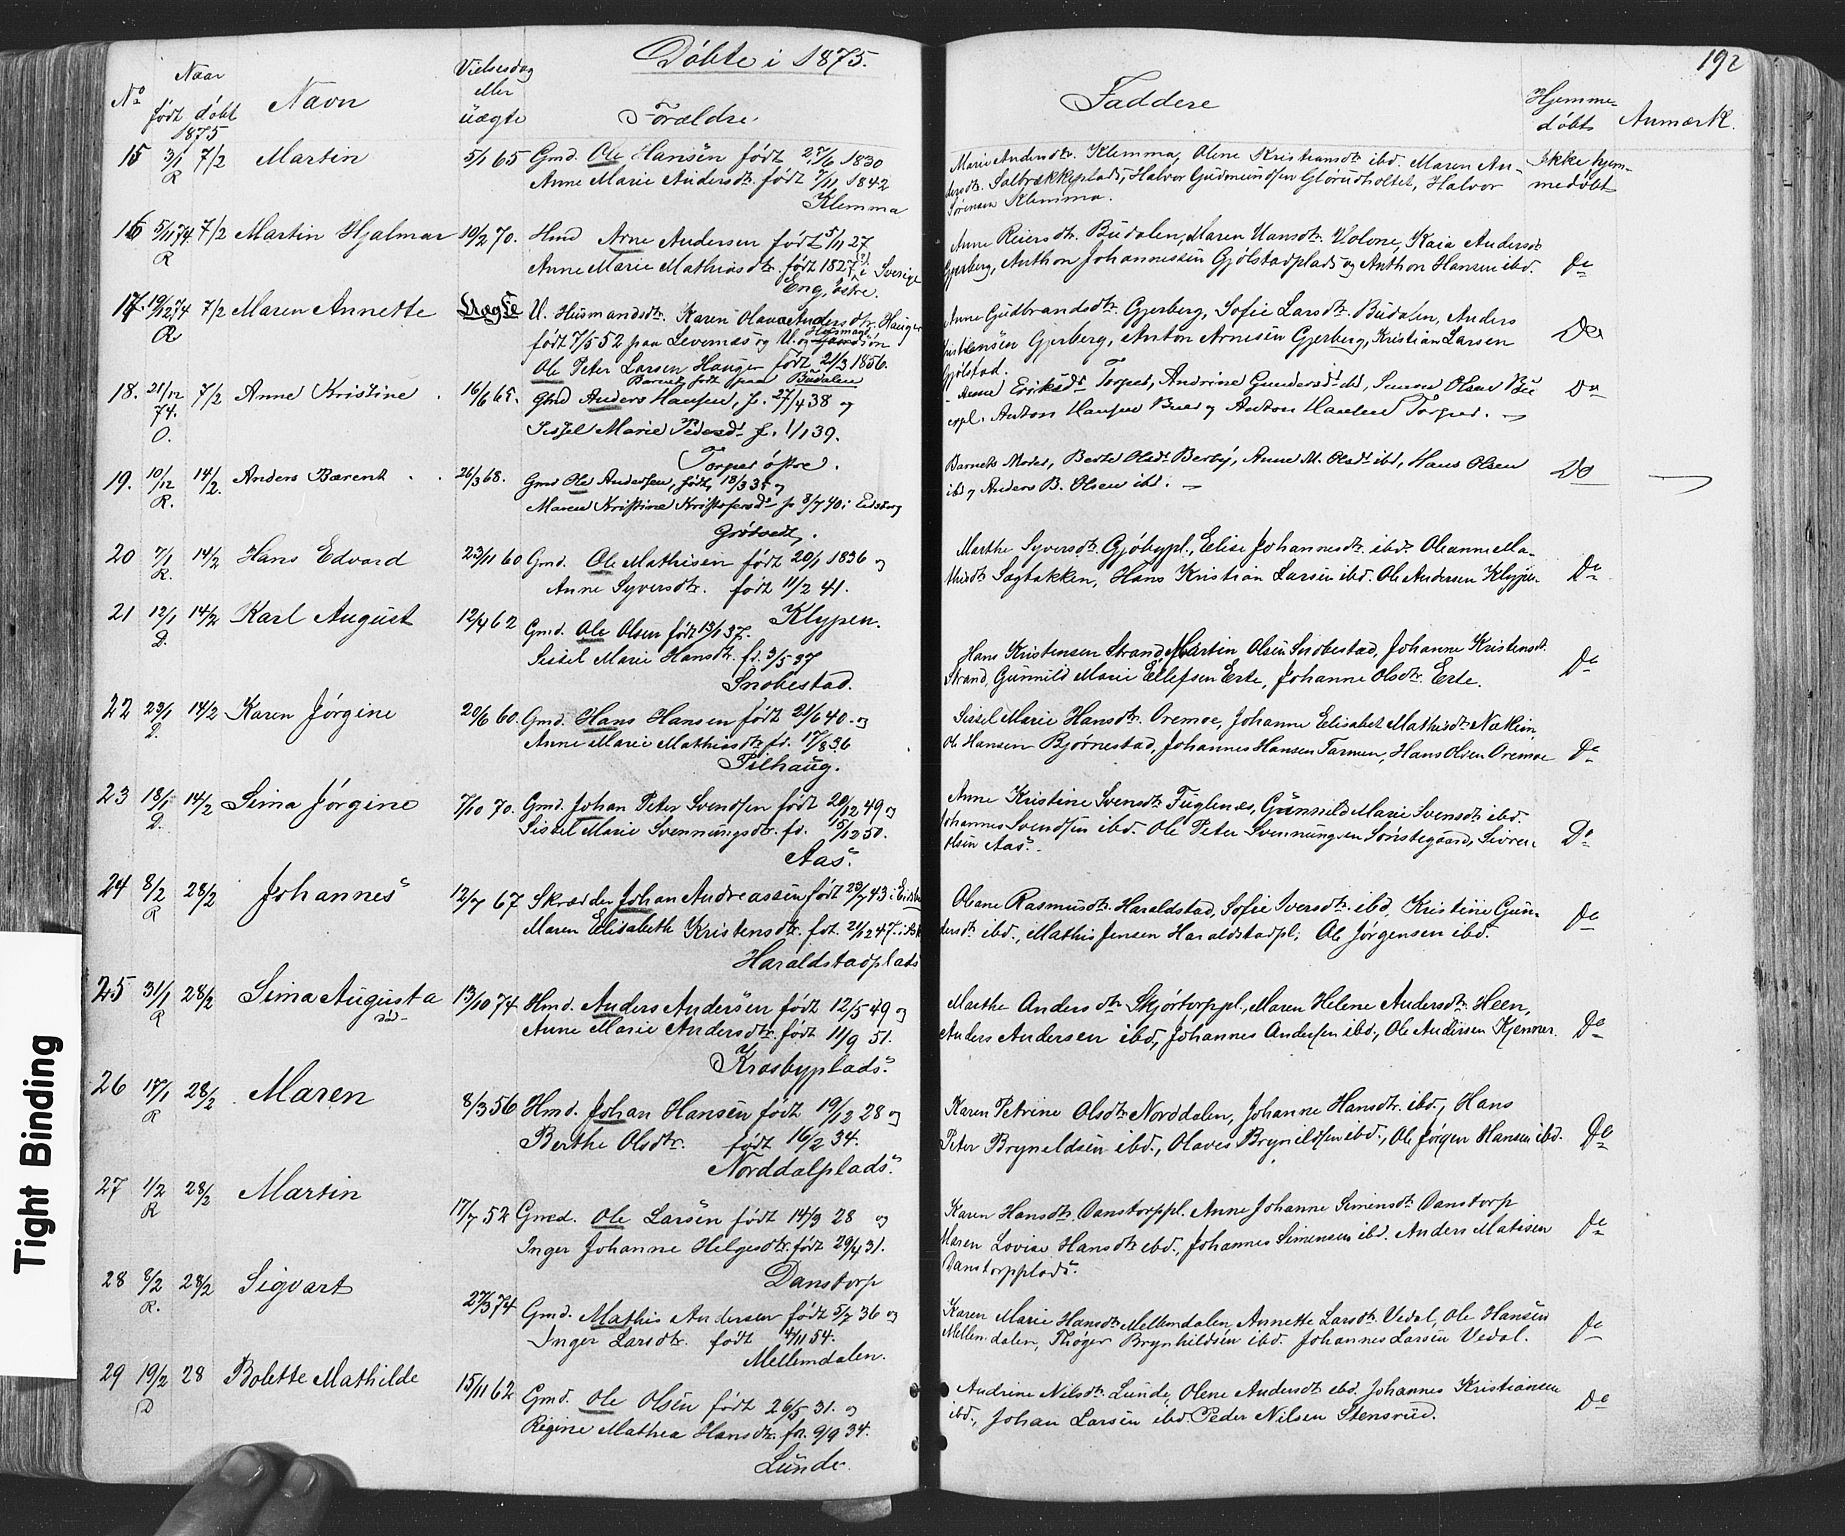 Döbte i 1875.
192
No
Naar
født döbt
1875
Navn
Vielsesdag
eller
üægte
Forældre
Faddere
Hjemme-
døbt
Anmærk.
15 3/1 7/2 Martin 5/1 65 Gmd. Ole Hansen født 27/6 1830
R Anne Marie Andersdtr. født 7/11 1842
Klemma
Marie Andersdtr. Klemma, Olene Kristiansdtr ibd. Maren An-
dersdtr. Solbrækkeplads, Halvor Gudmundsen Glørudholtet, Halvor
Sørensen Klemma.
Ikke hjem-
medøbt
16 5/11 74 7/2 Martin Hjalmar 19/2 70. Hmd Arne Andersen født 5/11 27
R Anne Marie Mathiasdtr. født 1827 i Sverige
Eng, østre.
Anne Reiersdtr. Budalen, Maren Hansdtr. Volone, Kaia Andersdtr
Gjerberg, Anthon Johannessen Gjølstadplads og Anthon Hansen ibd.
Do
17. 19/12 74 7/2 Maren Annette Uægte U. Husmandsdtr. Karen Olava Andersdtr. Hauger
R født 7/5 52 paa Levernæs og U. og Husmandssøn
Ole Peter Larsen Hauger født 21/3 1856.
Barnet født paa Budalen
Anne Gudbrandsdtr. Gjerberg, Sofie Larsdtr. Budalen, Anders
Kristiansen Gjerberg, Anton Arnesen Gjerberg, Kristian Larsen
Gjølstad.
Do
18. 21/12 7/2 Anne Kristine 16/6 65. Gmd Anders Hansen, f. 27/4 38 og
74.
O. Sissel Marie Pedersdtr f. 1/1 39.
Torper østre.
Anne Eriksdtr Torper, Andrine Gundersdtr ibd, Simen Olsen Bu
erpl. Anton Hansen Buer og Anton Hansen Torper.
Do
19. 10/12 14/2. Anders Bærent 26/3 68. Gmd Ole Andersen, født 18/3 35 og
R. Maren Kristine Kristofersdtr f. 8/7 40 i Eidsberg
Grötvedt.
Barnets Moder, Berte Olsdtr Berby, Anne M. Olsdtr ibd, Hans Olsen
ibd og Anders B. Olsen ibd.
Do
20 7/1 14/2 Hans Edvard 23/11 60 Gmd. Ole Mathisen født 20/1 1836 og
R. Anne Syversdtr. født 11/2 41.
Klypen.
Marthe Syversdtr. Gjøbypl., Eelise Johannesdtr. ibd. Olianne Ma-
thisdtr. Sagbakken, Hans Kristian Larsen ibd. Ole Andersen Klypen.
Do
21 12/1 14/2 Karl August 12/4 62 Gmd. Ole Olsen født 13/1 37.
D. Sissel Marie Hansdtr. fd. 3/5 37
Snobestad.
Hans Kristensen Strand, Martin Olsen Snobestad, Johanne Kristensdtr.
Strand, Gunnild Marie Ellefsen Erte, Johanne Olsdtr. Erte.
Do
22 23/1 14/2 Karen Jørgine 20/6 60. Gmd. Hans Hansen født 21/6 40. og
D. Anne Marie Mathiasdtr. fd. 17/8 36
Pilhaug.
Sissel Marie Hansdtr. Oremoe, Johanne Eelisabet Mathisdtr. Nakkim
Ole Hansen Bjørnestad, Johannes Hansen Tarmen, Hans Olsen Oremoe
Do
23 18/1 14/2 Sima Jørgine 7/10 70. Gmd. Johan Peter Svendsen født 20/12 49 og
D. Sissel Marie Svenningsdtr. fd. 15/12 50.
Aas.
Anne Kristine Svensdtr. Fuglenæs, Gunnild Marie Svensdtr. ibd.
Johannes Svendsen ibd. Ole Peter Svenningsen Sønstegaard, Siver
Olsen Aas.
Do
24 8/2 28/2 Johannes 12/7 67 Skrædder Johan Andreassen født 23/7 43 i Eidsb
R Maren Elisabeth Kristensdtr. føt. 21/12 47. i
Haraldstadplads
Oleane Rasmusdtr. Haraldstad, Sofie Iversdtr. ibd, Kristine Gun-
dersdtr. ibd., Mathis Jensen Haraldstadpl; Ole Jørgensen ibd.
Do
25 31/1 28/2 Sima Augusta 13/10 74. Hmd. Anders Andersen født 12/5 49 og
R død- Anne Marie Andersdtr. født 11/9 51.
Krosbyplads.
Marthe Andersdtr Skjørtorppl., Maren Helene Andersdtr. Heen,
Anders Andersen ibd., Johannes Andersen ibd., Ole Andersen Kjenner.
Do
26 17/1 28/2 Maren 8/3 56 Hmd. Johan Hansen født 19/12 28 og
R Berthe Olsdtr. født 16/2 34.
Norddalplads.
Karen Petrine Olsdtr. Norddalen, Johanne Hansdtr. ibd., Hans
Peter Bryneldsen ibd., Olaves Bryneldsen ibd., Ole Jørgen Hansen ibd.
Do
27 1/2 28/2 Martin 17/7 52 Gmd. Ole Larsen født 14/3 28 og
R Inger Johanne Helgesdtr. født 29/4 31.
Danstorp
Karen Hansdtr. Danstorppl. Anne Johanne Simensdtr. Danstorp
Maren Lovise Hansdtr ibd., Johannes Simensen ibd. Anders Matisen
Danstorpplads.
Do
28 8/2 28/2 Sigvart 27/3 74 Gmd. Mathis Andersen født 5/7 36 og
R. Inger Larsdtr. født 4/11 54.
Mellemdalen.
Karen Marie Hansdtr. Mellemdalen, Annette Larsdtr. Vedal, Ole Hansen
Mellemdalen, Thøger Brynhildsen ibd. Johannes Larsen Vedal.
Do
29 19/2 28 Bolette Mathilde 15/11 62 Gmd. Ole Olsen født 26/5 31. og
D Regine Mathea Hansdtr. fd. 9/9 34.
Lunde.
Andrine Nilsdtr. Lunde, Olene Andersdtr ibd. Johannes Kristiansen
ibd., Johan Larsen ibd. Peder Nilsen Stensrud.
Do
Tight Binding